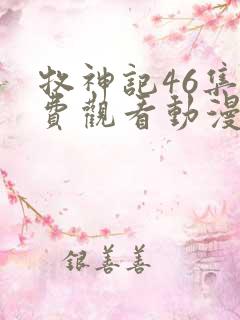 牧神記46集
費觀看動漫
銀善善